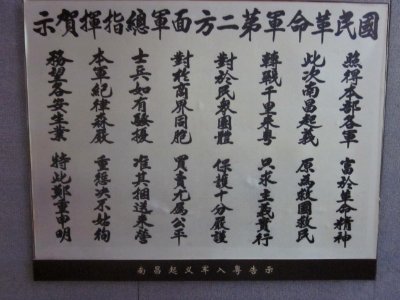 國民革命軍第二方面軍總指揮賀示
照得本部各軍 富於革命精神
此次南昌起義 原為救國救民
轉戰千里來粵 只求主義實行
對於民眾團體 保護十分嚴謹
對於商界同胞 買賣尤屬公平
士兵如有騷擾 准其捆送來營
本軍紀律森嚴 重懲決不姑徇
務望各安生業 特此鄭重申明
南昌起义军入粤告示